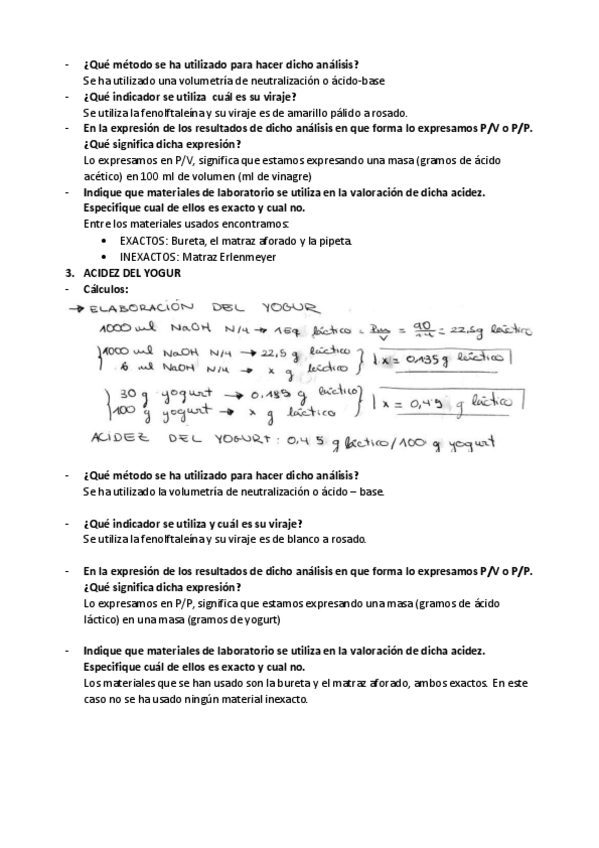 - ¿Qué método se ha utilizado para hacer dicho análisis?
Se ha utilizado una volumetría de neutralización o ácido-base
- ¿Qué indicador se utiliza cuál es su viraje?
Se utiliza la fenolftaleína y su viraje es de amarillo pálido a rosado.
- En la expresión de los resultados de dicho análisis en que forma lo expresamos P/V o P/P.
¿Qué significa dicha expresión?
Lo expresamos en P/V, significa que estamos expresando una masa (gramos de ácido
acético) en 100 ml de volumen (ml de vinagre)
- Indique que materiales de laboratorio se utiliza en la valoración de dicha acidez.
Especifique cual de ellos es exacto y cual no.
Entre los materiales usados encontramos:
• EXACTOS: Bureta, el matraz aforado y la pipeta.
• INEXACTOS: Matraz Erlenmeyer
3. ACIDEZ DEL YOGUR
- Cálculos:
→ ELABORACIÓN DEL YOGUR
1000 ml NaOH N/4 → 1 Eq láctico = = 90 = 22,5 g láctico
1000 ml NaOH N/4 → 22,5 g láctico
6 ml NaOH N/4 → x g láctico x = 0,135 g láctico
30 g yogurt → g láctico
100 g yogurt → x g láctico x = 0,45 g láctico
ACIDEZ DEL YOGURT: 0,45 g láctico/100 g yogurt
- ¿Qué método se ha utilizado para hacer dicho análisis?
Se ha utilizado la volumetría de neutralización o ácido – base.
- ¿Qué indicador se utiliza y cuál es su viraje?
Se utiliza la fenolftaleína y su viraje es de blanco a rosado.
- En la expresión de los resultados de dicho análisis en que forma lo expresamos P/V o P/P.
¿Qué significa dicha expresión?
Lo expresamos en P/P, significa que estamos expresando una masa (gramos de ácido
láctico) en una masa (gramos de yogurt)
- Indique que materiales de laboratorio se utiliza en la valoración de dicha acidez.
Especifique cuál de ellos es exacto y cual no.
Los materiales que se han usado son la bureta y el matraz aforado, ambos exactos. En este
caso no se ha usado ningún material inexacto.